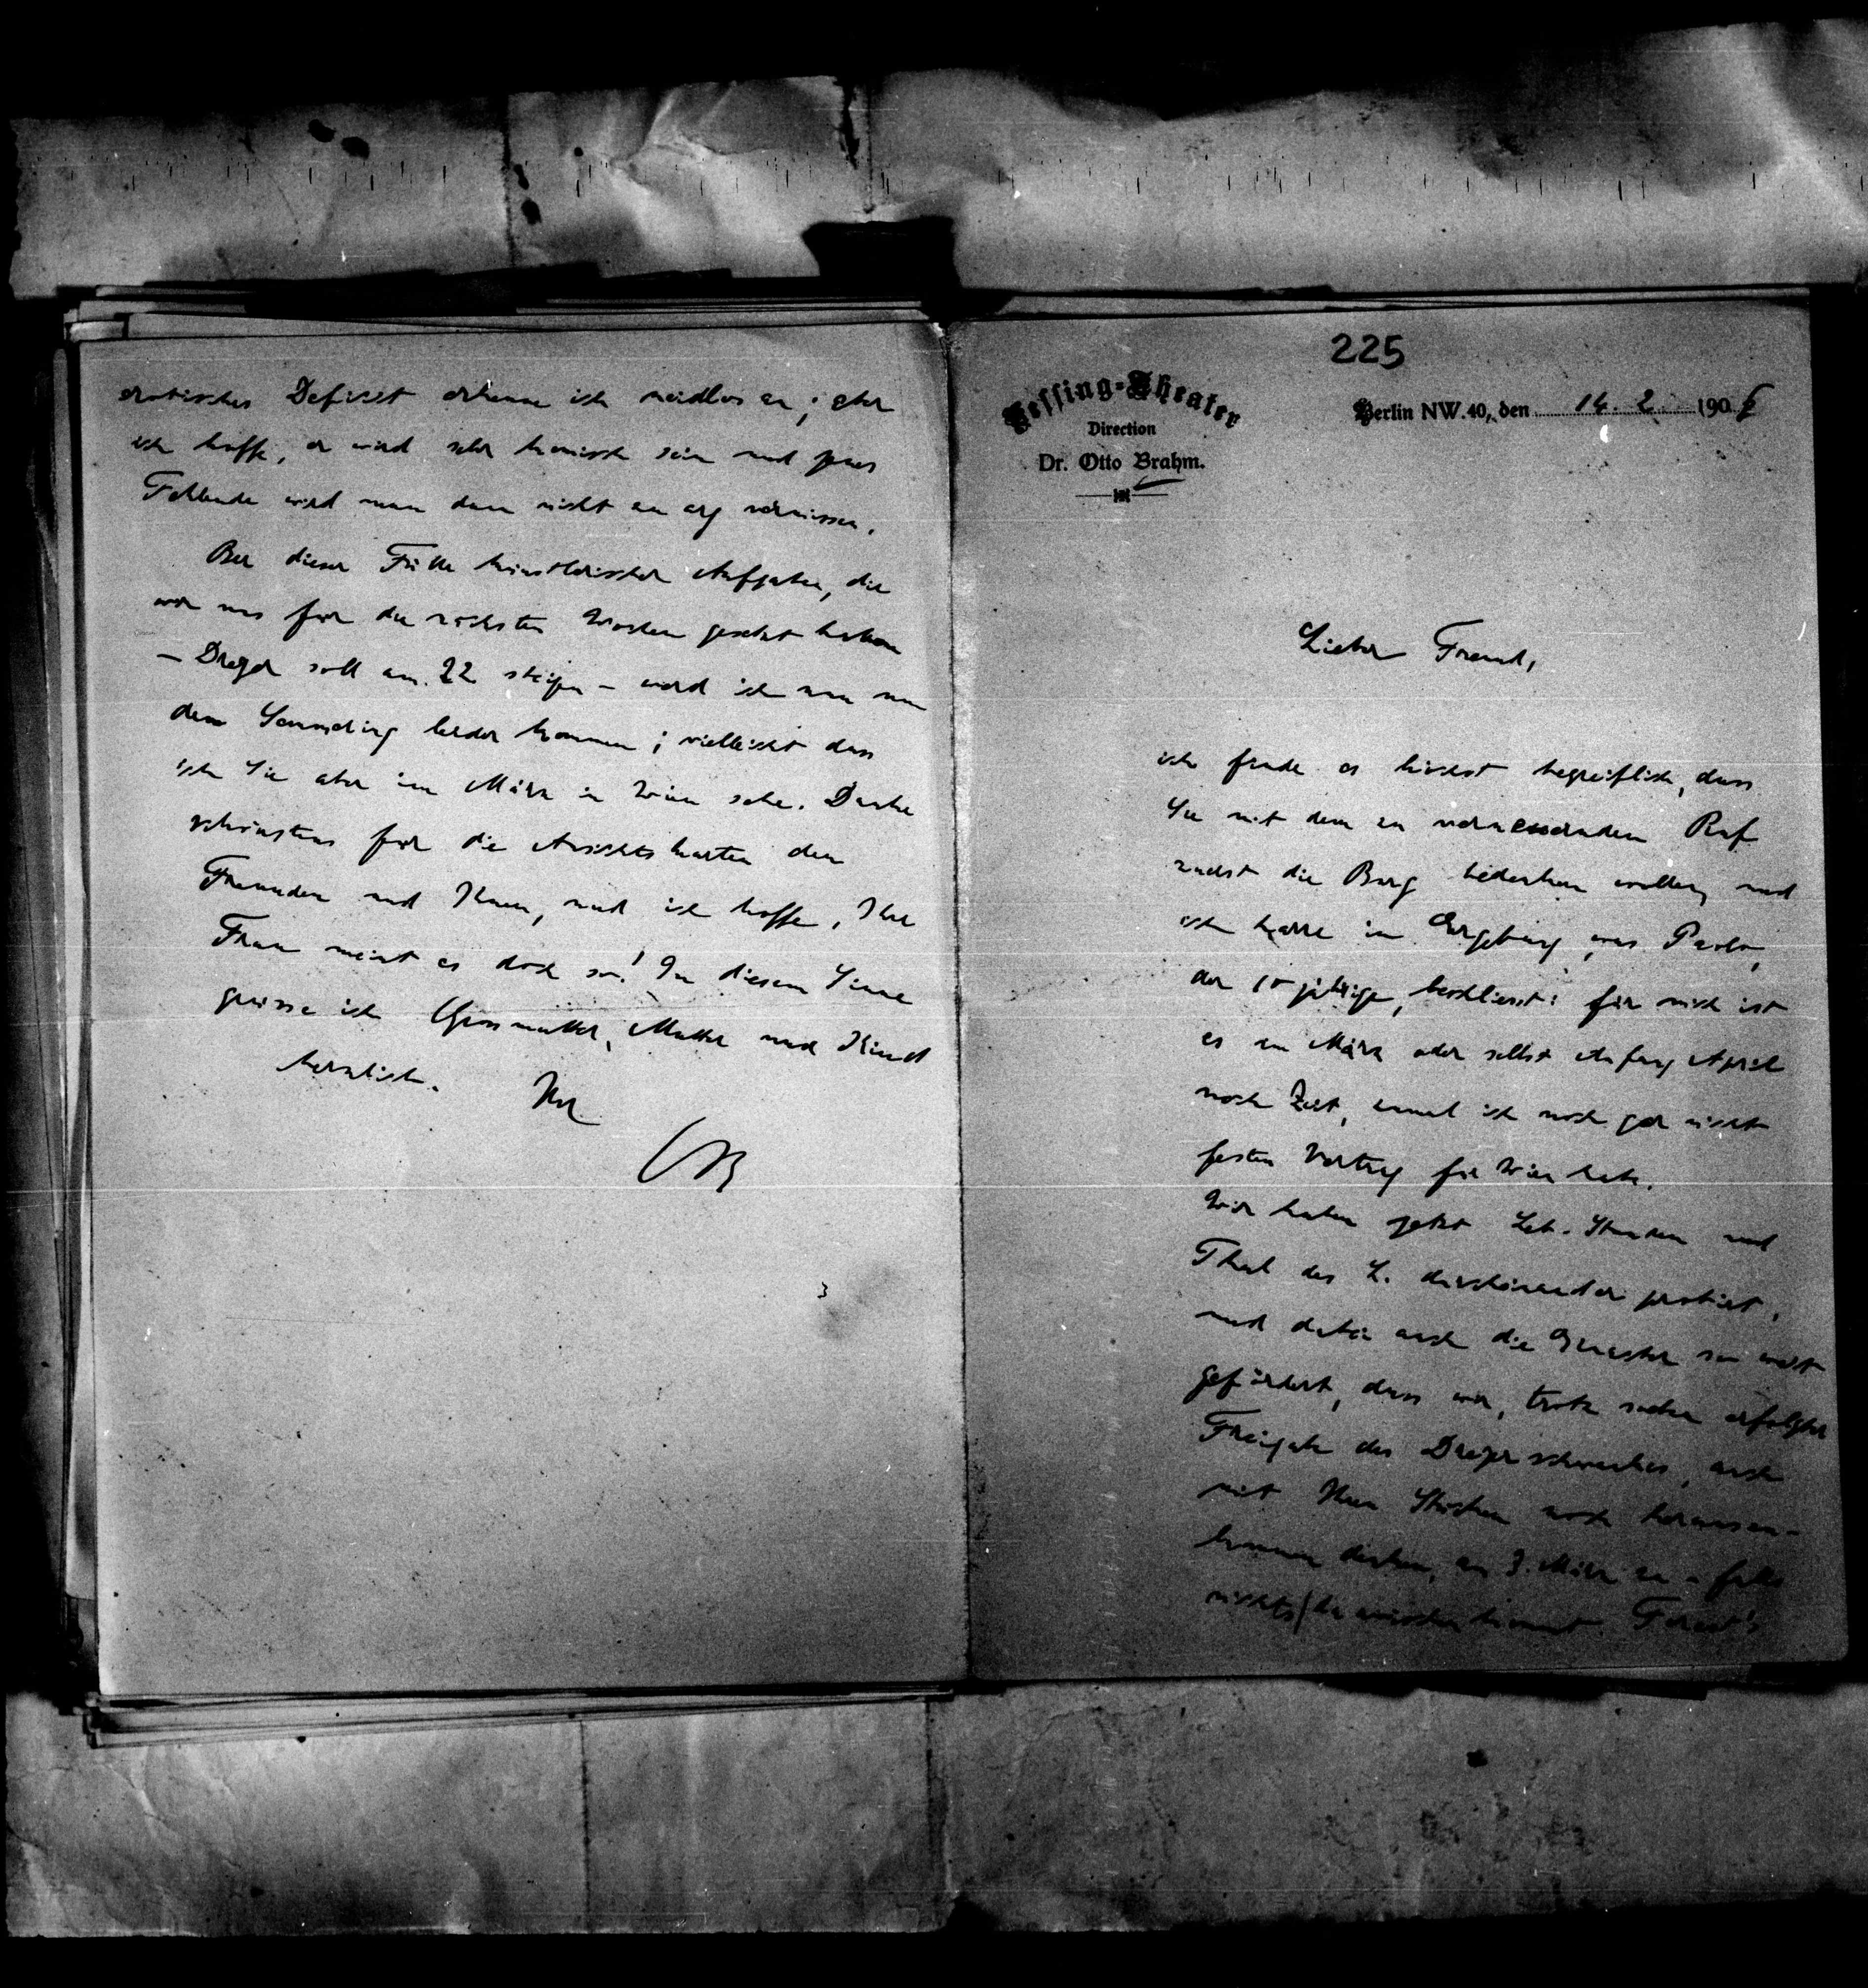 225
Lessing-Theater
Direction
Dr. Otto Brahm.
Berlin NW. 40, den 14. 2. 1906
Lieber Freund,
ich finde es höchst begreiflich, dass
Sie mit dem zu vermessernden Ruf
zuerst die Burg bedenken wollen, und
ich harre in
der 10 jährige, beschliesst: für mich ist
es im März oder selbst Anfang April
noch Zeit, zumal ich noch gar nicht
festen Vertrag für Wien habe.
Wir haben jetzt Leb. Stunden und
Thal des L. durcheinander probiert,
und dabei auch die so weit
gefördert, dass wir, trotz soeben erfolgter
Freigabe des Dreyerschwankes, auch
mit Ihren Stücken noch herauszu-
kommen denken, am 3. März ca – falls
nichts dazwischen kommt. Forest's
erotisches Defizit erkenne ich neidlos an; aber
ich hoffe, er wird sehr komisch sein und jenes
Fehlende wird man dann nicht zu arg vermissen.
Bei dieser Fülle künstlerischer Aufgaben, die
wir uns für die nächsten Wochen gesetzt haben
– Dreyer soll am 22 steigen – werd ich nun um
den Semmering leider kommen; vielleicht dass
ich Sie aber im März in Wien sehe. Danke
schönstens für die Ansichtskarten den
Freunden und Ihnen, und ich hoffe, Ihre
Frau meint es doch so! In diesem Sinne
grüsse ich Grossmutter, Mutter und Kind
herzlich. Ihr
OB